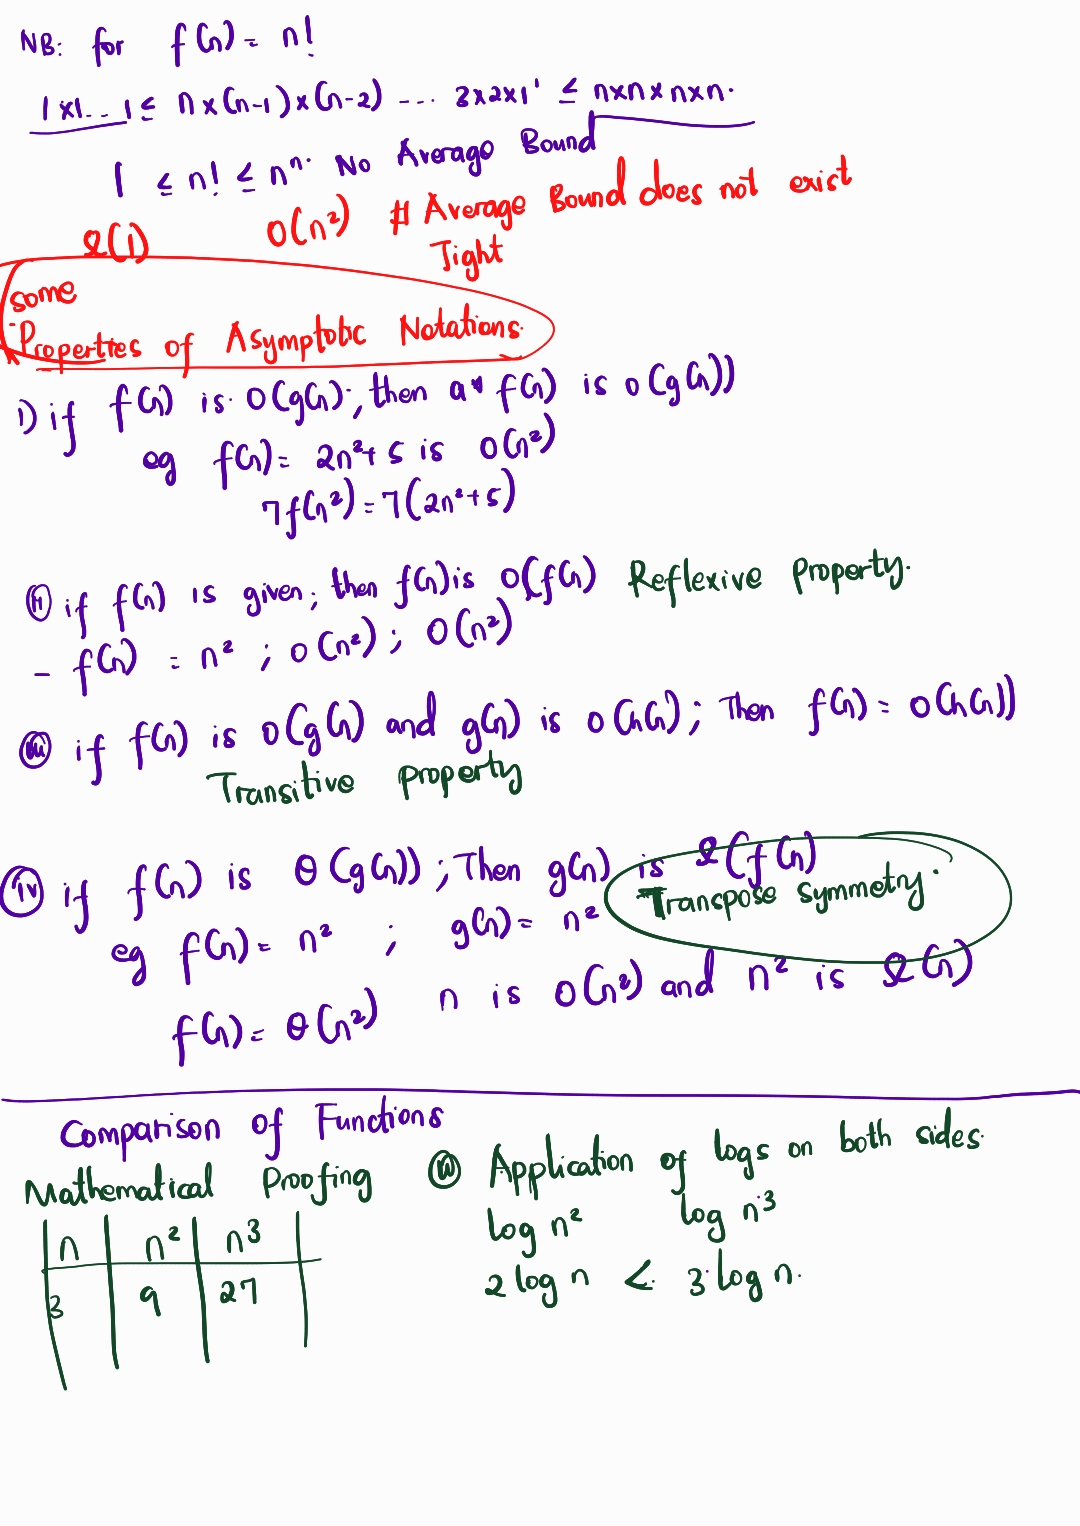 NB: for f(n) = n!
1×1...1 ≤ n×(n-1)×(n-2) ... 3×2×1 ≤ n×n×n×n.
1 ≤ n! ≤ nⁿ. No Average Bound
Ω(1) O(n²) # Average Bound does not exist
Tight
some
Properties of Asymptotic Notations
i) if f(n) is O(g(n); then a* f(n) is O(g(n))
eg f(n) = 2n²+5 is O(n²)
7f(n²) = 7(2n²+5)
(ii) if f(n) is given; then f(n) is O(f(n) Reflexive Property.
- f(n) = n² ; O(n²); O(n²)
(iii) if f(n) is O(g(n) and g(n) is O(h(n); Then f(n) = O(h(n))
Transitive property
(iv) if f(n) is θ(g(n)); Then g(n) is Ω(f(n)
Transpose symmetry.
eg f(n) = n² ; g(n) = n²
f(n) = θ(n²) n is O(n²) and n² is Ω(n)
Comparison of Functions
Mathematical Proofing
n n² n³
3 9 27
Application of logs on both sides.
log n² log n³
2 log n < 3 log n.